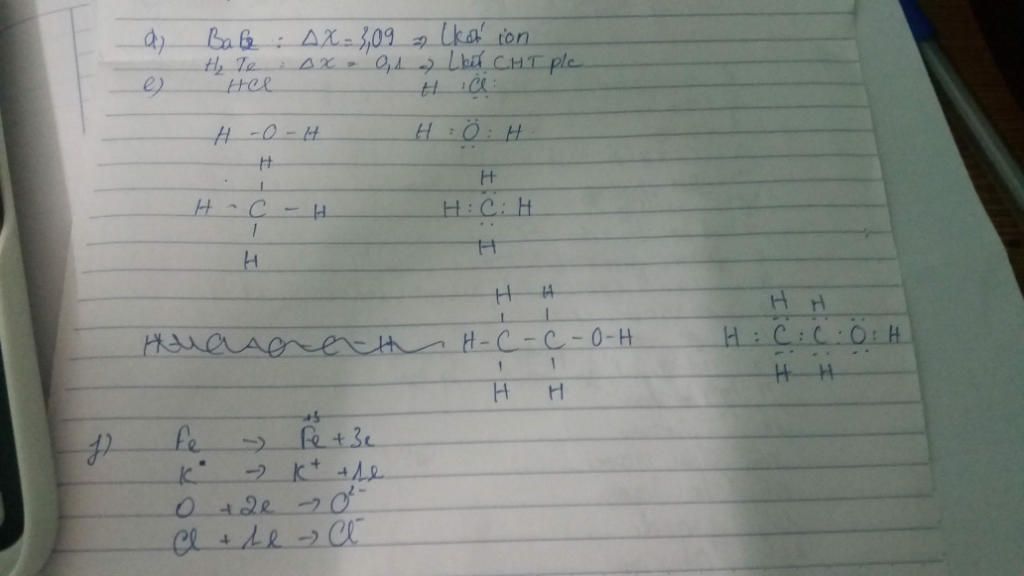 d) BaF2 : ΔX = 3,09 ⇒ Lkết ion
H2Te : ΔX = 0,1 ⇒ Lkết CHT p/c
e) HCl H :Cl:
H - O - H H : O : H
H H
H - C - H H : C : H
H H
H H H H
H - C - C - O - H H : C : C : O : H
H H H H
f) Fe → Fe+3 + 3e
K → K+ + 1e
O + 2e → O2-
Cl + 1e → Cl-